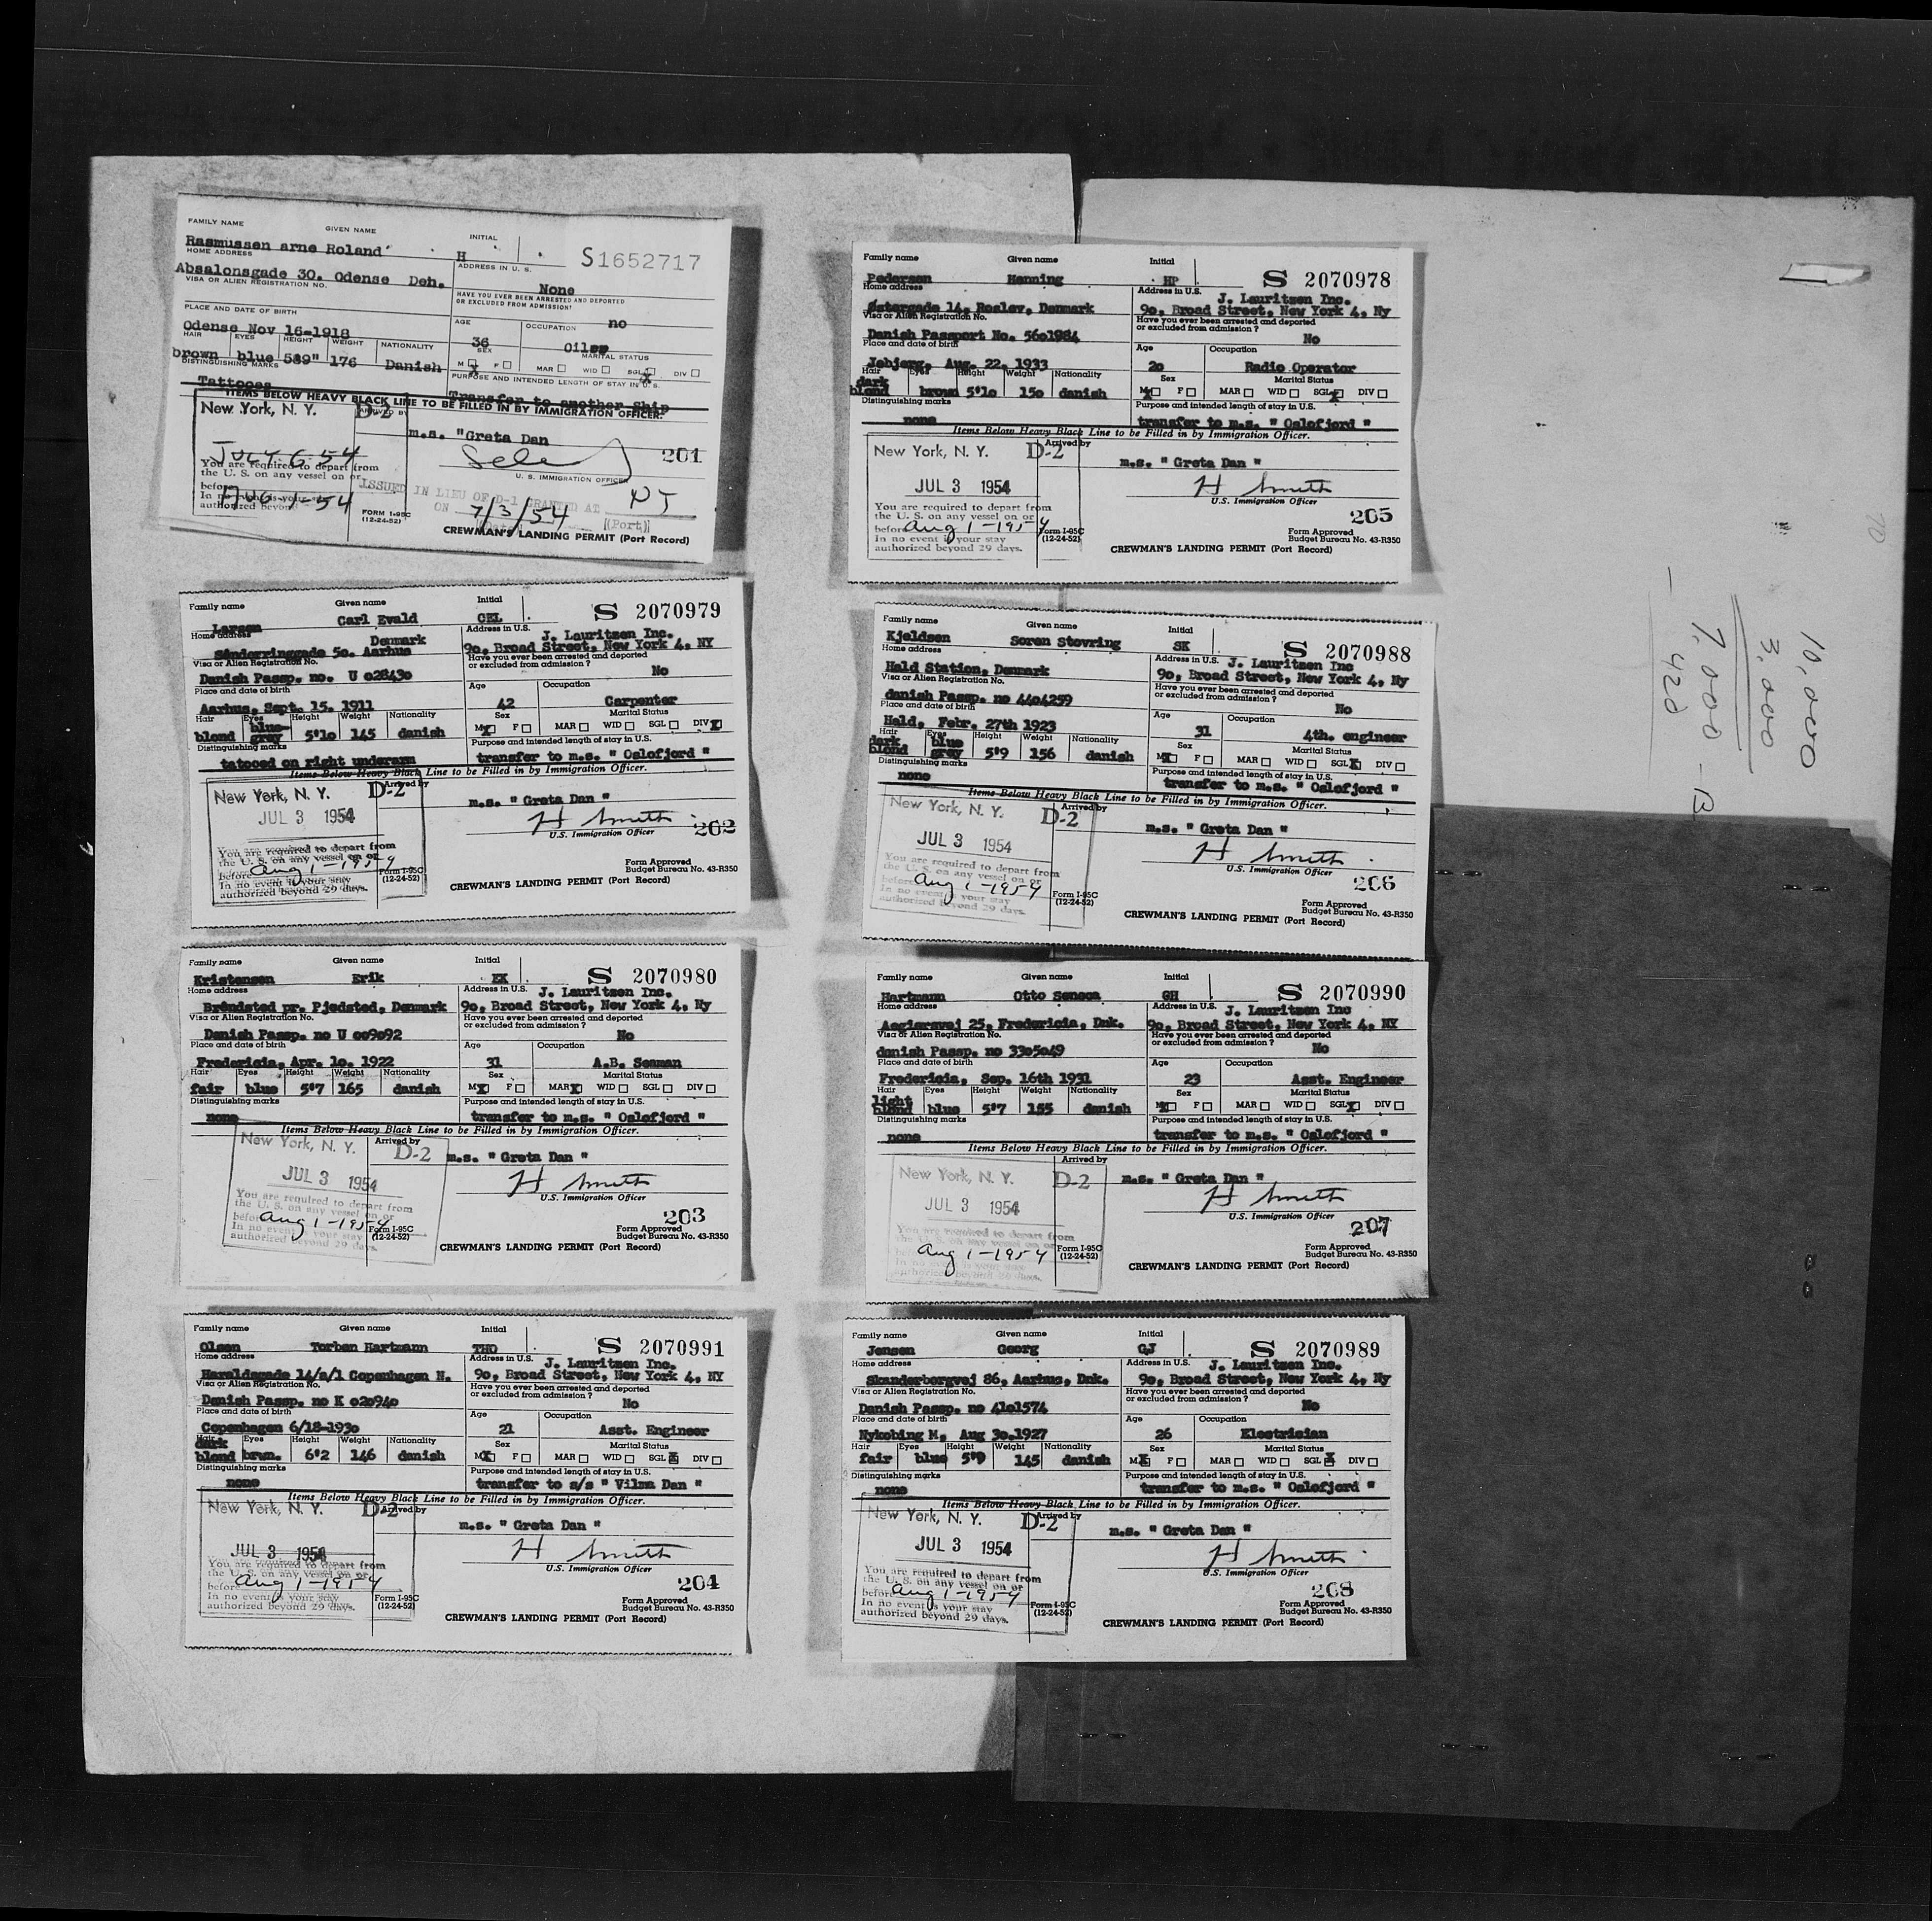 FAMILY NAME GIVEN NAME INITIAL
Rasmussen arne Roland H
S1652717
HOME ADDRESS ADDRESS IN U. S.
Absalonsgade 30. Odense Deh. None
VISA OR ALIEN REGISTRATION NO. HAVE YOU EVER BEEN ARRESTED AND DEPORTED
OR EXCLUDED FROM ADMISSION?
no
PLACE AND DATE OF BIRTH AGE OCCUPATION
Odense Nov 16-1918 36 Oiler
HAIR EYES HEIGHT WEIGHT NATIONALITY SEX MARITAL STATUS
brown blue 589" 176 Danish M X F MAR WID SGL X DIV
DISTINGUISHING MARKS PURPOSE AND INTENDED LENGTH OF STAY IN U. S.
Tattooes Transfer to another Ship
ITEMS BELOW HEAVY BLACK LINE TO BE FILLED IN BY IMMIGRATION OFFICER.
New York, N. Y. D-2 ARRIVED BY
m.s. "Greta Dan
JULY 6-54 201
You are required to depart from
the U. S. on any vessel on or
before AUG-1-54
In no event is your stay
authorized beyond
U. S. IMMIGRATION OFFICER
ISSUED IN LIEU OF D-1 GRANTED AT
ON 7/3/54 (Date) (Port)
FORM I-95C
(12-24-52)
CREWMAN'S LANDING PERMIT (Port Record)
Family name Given name Initial
Larsen Carl Evald CEL S 2070979
Home address Address in U.S.
Denmark J. Lauritzen Inc.
Sønderringgade 5o. Aarhus 9o, Broad Street, New York 4, NY
Visa or Alien Registration No. Have you ever been arrested and deported
or excluded from admission ?
Danish Passp. no. U o2843o No
Place and date of birth Age Occupation
Aarhus, Sept. 15. 1911 42 Carpenter
Hair Eyes Height Weight Nationality Sex Marital Status
blond blue-grey 5'1o 145 danish M X F MAR WID SGL DIV X
Distinguishing marks Purpose and intended length of stay in U.S.
tatooed on right underarm transfer to m.s. " Oslofjord "
Items Below Heavy Black Line to be Filled in by Immigration Officer.
New York, N. Y. D-2 Arrived by
m.s. " Greta Dan "
JUL 3 1954 H Smith
U.S. Immigration Officer 202
You are required to depart from
the U. S. on any vessel on or
before Aug 1-1954
In no event is your stay
authorized beyond 29 days.
Form I-95C
(12-24-52)
Form Approved
Budget Bureau No. 43-R350
CREWMAN'S LANDING PERMIT (Port Record)
Family name Given name Initial
Kristensen Erik EK S 2070980
Home address Address in U.S.
J. Lauritzen Inc.
Brøndsted pr. Pjedsted, Denmark 9o, Broad Street, New York 4, Ny
Visa or Alien Registration No. Have you ever been arrested and deported
or excluded from admission ?
Danish Passp. no U oo9o92 No
Place and date of birth Age Occupation
Fredericia, Apr. 1o. 1922 31 A.B. Seaman
Hair Eyes Height Weight Nationality Sex Marital Status
fair blue 5'7 165 danish M X F MAR X WID SGL DIV
Distinguishing marks Purpose and intended length of stay in U.S.
none transfer to m.s. " Oslofjord "
Items Below Heavy Black Line to be Filled in by Immigration Officer.
New York, N. Y. D-2 Arrived by
m.s. " Greta Dan "
JUL 3 1954 H Smith
U.S. Immigration Officer
You are required to depart from
the U. S. on any vessel on or
before Aug 1-1954
In no event is your stay
authorized beyond 29 days.
203
Form I-95C
(12-24-52)
Form Approved
Budget Bureau No. 43-R350
CREWMAN'S LANDING PERMIT (Port Record)
Family name Given name Initial
Olsen Torben Hartmann THO S 2070991
Home address Address in U.S.
J. Lauritzen Inc.
Haraldsgade 14/a/1 Copenhagen N. 9o, Broad Street, New York 4, NY
Visa or Alien Registration No. Have you ever been arrested and deported
or excluded from admission ?
Danish Passp. no K o2o94o No
Place and date of birth Age Occupation
Copenhagen 6/18-193o 21 Asst. Engineer
Hair Eyes Height Weight Nationality Sex Marital Status
dark blond brwn. 6'2 146 danish M X F MAR WID SGL X DIV
Distinguishing marks Purpose and intended length of stay in U.S.
none transfer to s/s " Vilma Dan "
Items Below Heavy Black Line to be Filled in by Immigration Officer.
New York, N. Y. D-2 Arrived by
m.s. " Greta Dan "
JUL 3 1954 H Smith
U.S. Immigration Officer
You are required to depart from
the U. S. on any vessel on or
before Aug 1-1954
In no event is your stay
authorized beyond 29 days.
204
Form I-95C
(12-24-52)
Form Approved
Budget Bureau No. 43-R350
CREWMAN'S LANDING PERMIT (Port Record)
Family name Given name Initial
Pedersen Henning HP S 2070978
Home address Address in U.S.
J. Lauritzen Inc.
Østergade 14, Roslev, Denmark 9o, Broad Street, New York 4, Ny
Visa or Alien Registration No. Have you ever been arrested and deported
or excluded from admission ?
Danish Passport No. 56o1984 No
Place and date of birth Age Occupation
Jebjerg, Aug. 22. 1933 2o Radio Operator
Hair Eyes Height Weight Nationality Sex Marital Status
dark blond brown 5'1o 15o danish M X F MAR WID SGL X DIV
Distinguishing marks Purpose and intended length of stay in U.S.
none transfer to m.s. " Oslofjord "
Items Below Heavy Black Line to be Filled in by Immigration Officer.
New York, N. Y. D-2 Arrived by
m.s. " Greta Dan "
JUL 3 1954 H Smith
U.S. Immigration Officer
You are required to depart from
the U. S. on any vessel on or
before Aug 1-1954
In no event is your stay
authorized beyond 29 days.
205
Form I-95C
(12-24-52)
Form Approved
Budget Bureau No. 43-R350
CREWMAN'S LANDING PERMIT (Port Record)
Family name Given name Initial
Kjeldsen Soren Stovring SK S 2070988
Home address Address in U.S. J. Lauritzen Inc
Hald Station, Denmark 9o, Broad Street, New York 4, Ny
Visa or Alien Registration No. Have you ever been arrested and deported
or excluded from admission ?
danish Passp. no 44o4259 No
Place and date of birth Age Occupation
Hald, Febr. 27th 1923 31 4th. engineer
Hair Eyes Height Weight Nationality Sex Marital Status
dark blond blue grey 5'9 156 danish M X F MAR WID SGL X DIV
Distinguishing marks Purpose and intended length of stay in U.S.
none transfer to m.s. " Oslofjord "
Items Below Heavy Black Line to be Filled in by Immigration Officer.
New York, N. Y. D-2 Arrived by
m.s. " Greta Dan "
JUL 3 1954 H Smith
U.S. Immigration Officer
You are required to depart from
the U. S. on any vessel on or
before Aug 1-1954
In no event is your stay
authorized beyond 29 days.
206
Form I-95C
(12-24-52)
Form Approved
Budget Bureau No. 43-R350
CREWMAN'S LANDING PERMIT (Port Record)
Family name Given name Initial
Hartmann Otto Seneca GH S 2070990
Home address Address in U.S.
J. Lauritzen Inc
Aegiersvej 25, Fredericia, Dnk. 9o, Broad Street, New York 4, NY
Visa or Alien Registration No. Have you ever been arrested and deported
or excluded from admission ?
danish Passp. no 33o5o49 No
Place and date of birth Age Occupation
Fredericia, Sep. 16th 1931 23 Asst. Engineer
Hair Eyes Height Weight Nationality Sex Marital Status
light blond blue 5'7 155 danish M X F MAR WID SGL X DIV
Distinguishing marks Purpose and intended length of stay in U.S.
none transfer to m.s. " Oslofjord "
Items Below Heavy Black Line to be Filled in by Immigration Officer.
New York, N. Y. D-2 Arrived by
m.s. " Greta Dan "
JUL 3 1954 H Smith
U.S. Immigration Officer
You are required to depart from
the U. S. on any vessel on or
Aug 1-1954
In no event is your stay
authorized beyond 29 days.
207
Form I-95C
(12-24-52)
Form Approved
Budget Bureau No. 43-R350
CREWMAN'S LANDING PERMIT (Port Record)
Family name Given name Initial
Jensen Georg GJ S 2070989
Home address Address in U.S. J. Lauritzen Inc.
Skanderborgvej 86, Aarhus, Dnk. 9o, Broad Street, New York 4, Ny
Visa or Alien Registration No. Have you ever been arrested and deported
or excluded from admission ?
Danish Passp. no 41o1574 No
Place and date of birth Age Occupation
Nykobing M, Aug 3o.1927 26 Electrician
Hair Eyes Height Weight Nationality Sex Marital Status
fair blue 5'9 145 danish M X F MAR WID SGL X DIV
Distinguishing marks Purpose and intended length of stay in U.S.
none transfer to m.s. " Oslofjord "
Items Below Heavy Black Line to be Filled in by Immigration Officer.
New York, N. Y. D-2 Arrived by
m.s. " Greta Dan "
JUL 3 1954 H Smith
U.S. Immigration Officer
You are required to depart from
the U. S. on any vessel on or
before Aug 1-1954
In no event is your stay
authorized beyond 29 days.
208
Form I-95C
(12-24-52)
Form Approved
Budget Bureau No. 43-R350
CREWMAN'S LANDING PERMIT (Port Record)
10,000
3,000
7,000 - B
- 420